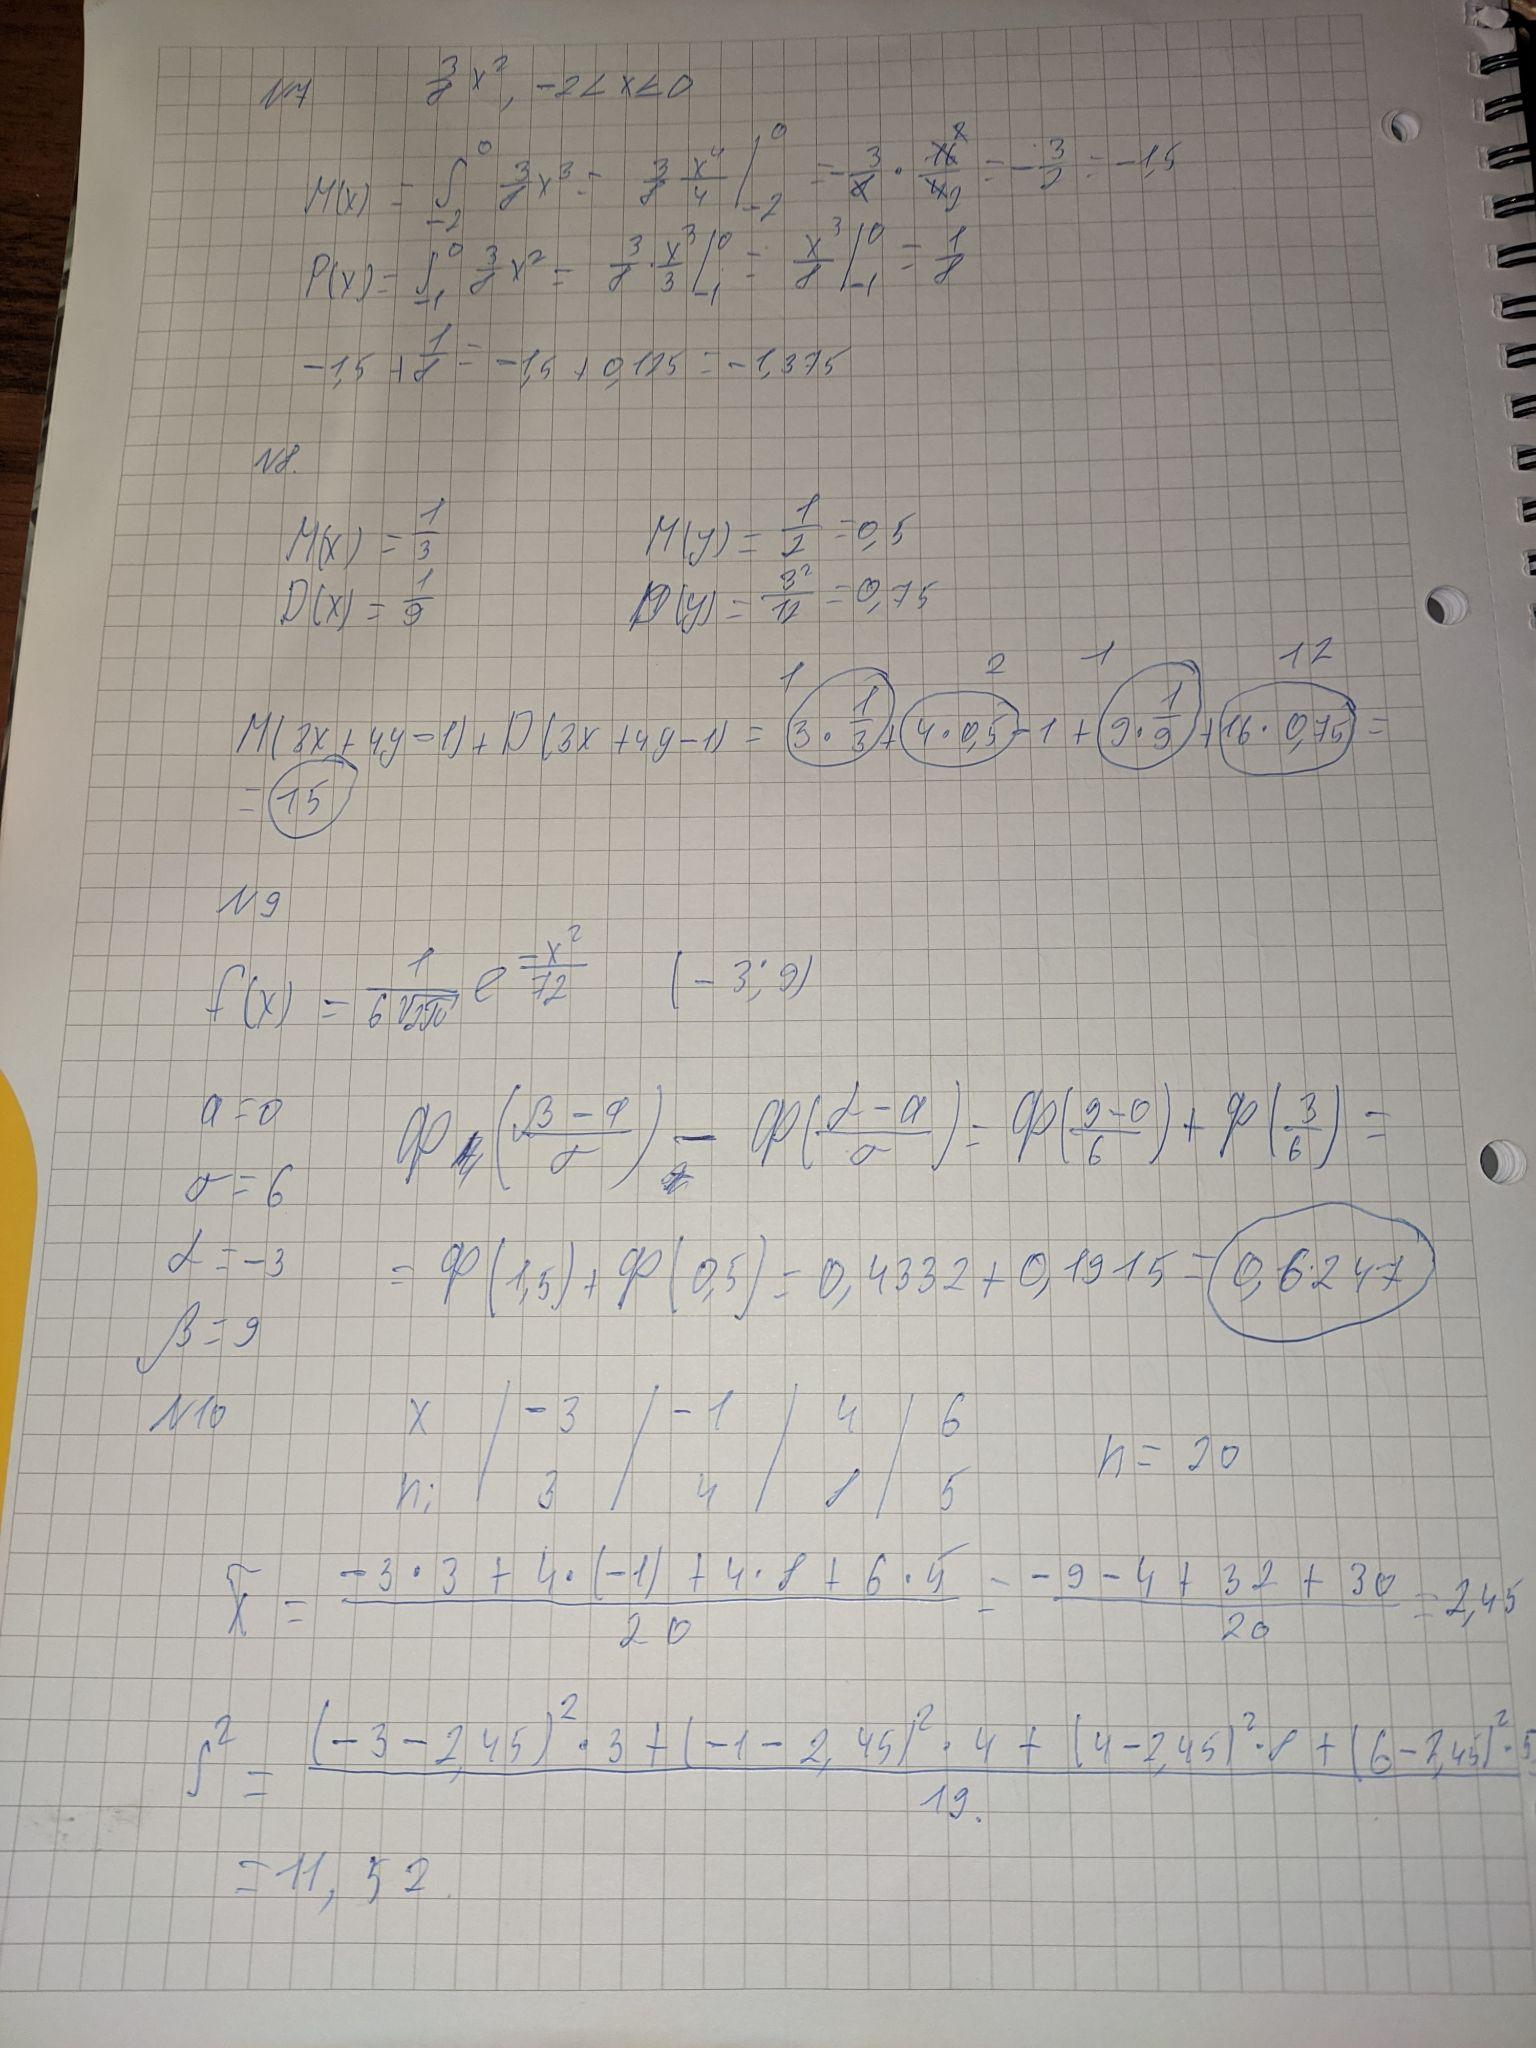 N7 3/8 x², -2<x<0
M(x) = ∫₋₂⁰ 3/8 x³ = 3/8 x⁴/4 |₋₂⁰ = -3/8 · 16/4 = -3/2 = -1,5
P(x) = ∫₋₁⁰ 3/8 x² = 3/8 · x³/3 |₋₁⁰ = x³/8 |₋₁⁰ = 1/8
-1,5 + 1/8 = -1,5 + 0,125 = -1,375
N8.
M(x) = 1/3 M(y) = 1/2 = 0,5
D(x) = 1/9 D(y) = 3²/12 = 0,75
1 2 1 12
M(3x+4y-1) + D(3x+4y-1) = 3·1/3 + 4·0,5 - 1 + 9·1/9 + 16·0,75 =
= 15
N9
f(x) = 1/(6√2π) e^(-x²/72) (-3; 9)
a=0 Ф((β-a)/σ) - Ф((α-a)/σ) = Ф((9-0)/6) + Ф(3/6) =
σ=6
α=-3 = Ф(1,5) + Ф(0,5) = 0,4332 + 0,1915 = 0,6247
β=9
N10 x | -3 | -1 | 4 | 6
n = 20
nᵢ | 3 | 4 | 8 | 5
x̄ = (-3·3 + 4·(-1) + 4·8 + 6·5)/20 = (-9-4+32+30)/20 = 2,45
S² = ((-3-2,45)²·3 + (-1-2,45)²·4 + (4-2,45)²·8 + (6-2,45)²·5)/19.
= 11,52.